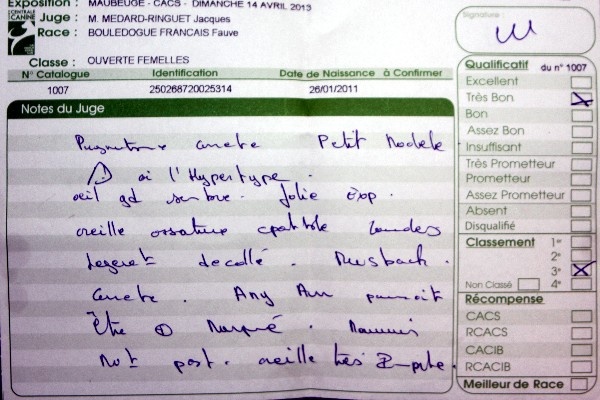 Exposition : MAUBEUGE - CACS - DIMANCHE 14 AVRIL 2013
Juge : M. MEDARD-RINGUET Jacques
Race : BOULEDOGUE FRANCAIS Fauve
CENTRALE CANINE
Classe : OUVERTE FEMELLES
N° Catalogue Identification Date de Naissance à Confirmer
1007 250268720025314 26/01/2011
Notes du Juge
correcte Petit Modele
à l'Hypertype.
oeil gd sombre. Jolie exp.
oreille ossature
Legeret decollé. Musbach.
correcte. Ang Ant pourrait
être Marqué.
Mvt post. oreille très
Signature :
Qualificatif du n° 1007
Excellent
Très Bon
Bon
Assez Bon
Insuffisant
Très Prometteur
Prometteur
Assez Prometteur
Absent
Disqualifié
Classement 1er
2e
3e
Non Classé 4e
Récompense
CACS
RCACS
CACIB
RCACIB
Meilleur de Race